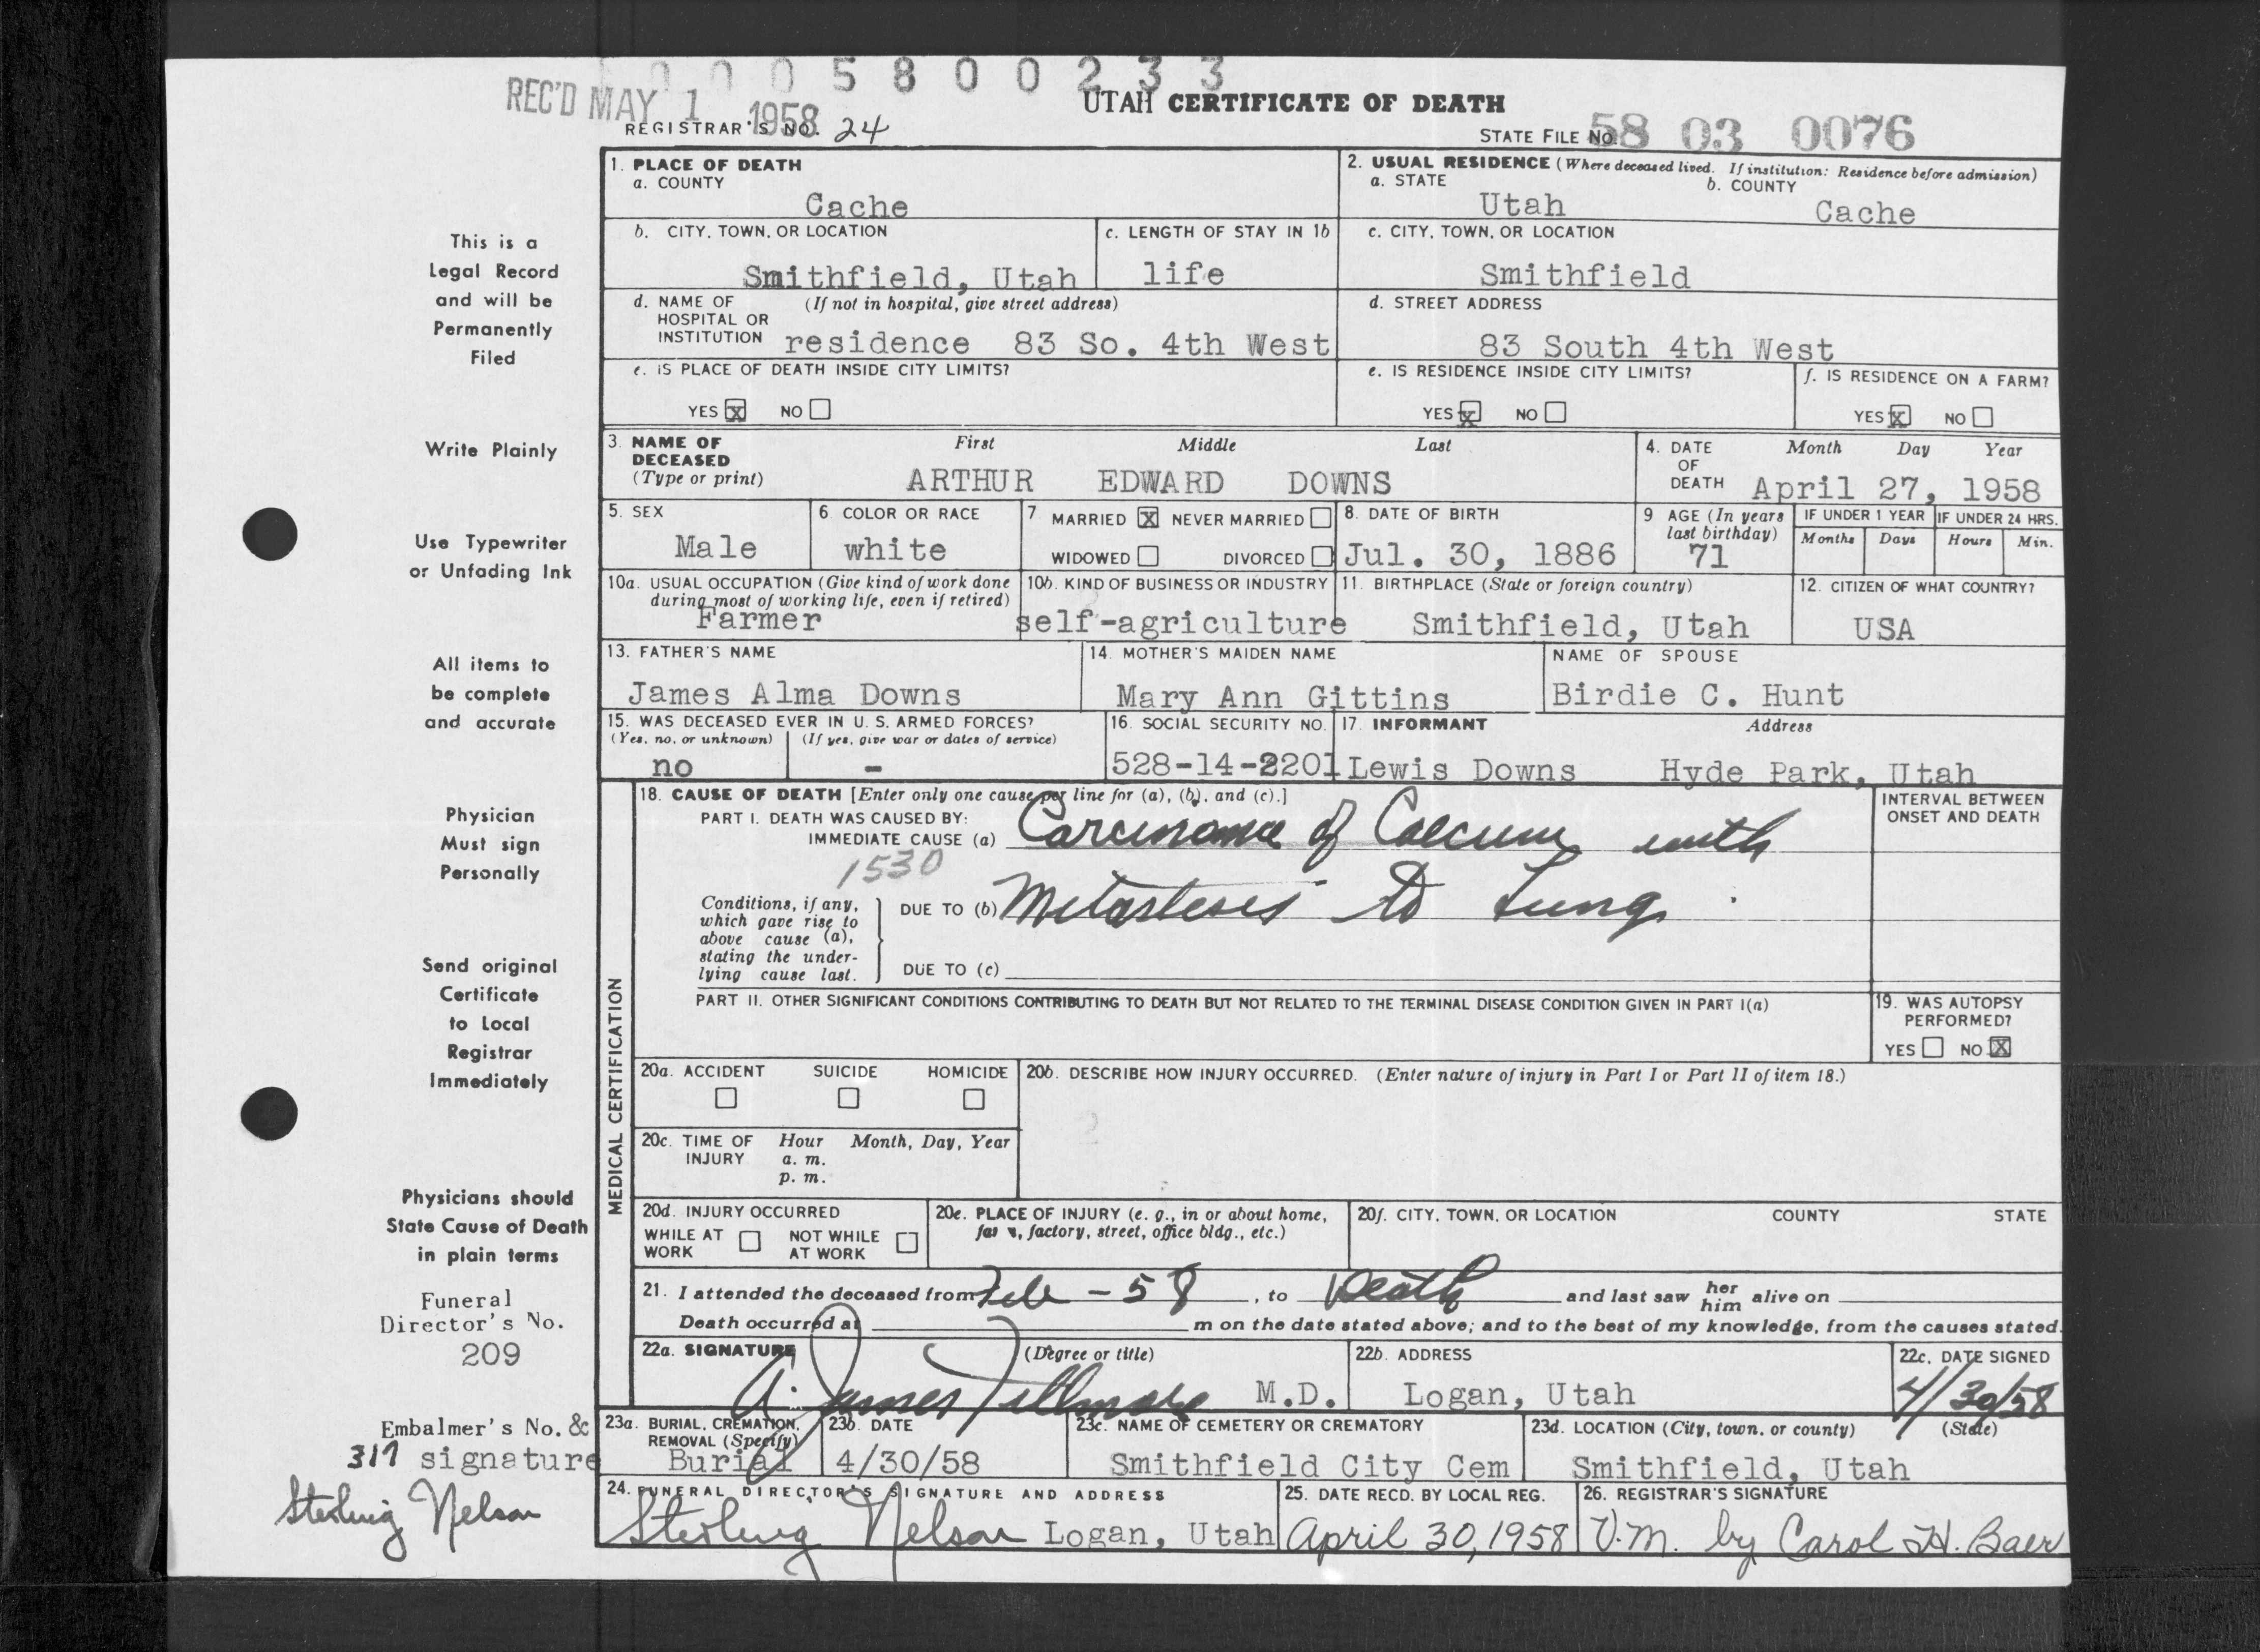 0 0 0 5 8 0 0 2 3 3
REC'D MAY 1 1958
UTAH CERTIFICATE OF DEATH
REGISTRAR'S NO. 24
STATE FILE NO. 58 03 0076
1. PLACE OF DEATH
a. COUNTY
Cache
2. USUAL RESIDENCE (Where deceased lived. If institution: Residence before admission)
a. STATE
b. COUNTY
Utah
Cache
b. CITY, TOWN, OR LOCATION
Smithfield, Utah
c. LENGTH OF STAY IN 1b
life
c. CITY, TOWN, OR LOCATION
Smithfield
d. NAME OF (If not in hospital, give street address)
HOSPITAL OR
INSTITUTION residence 83 So. 4th West
d. STREET ADDRESS
83 South 4th West
e. IS PLACE OF DEATH INSIDE CITY LIMITS?
YES X NO
e. IS RESIDENCE INSIDE CITY LIMITS?
YES X NO
f. IS RESIDENCE ON A FARM?
YES X NO
3. NAME OF DECEASED
(Type or print)
First Middle Last
ARTHUR EDWARD DOWNS
4. DATE OF DEATH
Month Day Year
April 27, 1958
5. SEX
Male
6. COLOR OR RACE
white
7 MARRIED X NEVER MARRIED
WIDOWED DIVORCED
8. DATE OF BIRTH
Jul. 30, 1886
9 AGE (In years
last birthday)
71
IF UNDER 1 YEAR
Months Days
IF UNDER 24 HRS.
Hours Min.
10a. USUAL OCCUPATION (Give kind of work done
during most of working life, even if retired)
Farmer
10b. KIND OF BUSINESS OR INDUSTRY
self-agriculture
11. BIRTHPLACE (State or foreign country)
Smithfield, Utah
12. CITIZEN OF WHAT COUNTRY?
USA
13. FATHER'S NAME
James Alma Downs
14. MOTHER'S MAIDEN NAME
Mary Ann Gittins
NAME OF SPOUSE
Birdie C. Hunt
15. WAS DECEASED EVER IN U. S. ARMED FORCES?
(Yes, no, or unknown) (If yes, give war or dates of service)
no -
16. SOCIAL SECURITY NO.
528-14-2201
17. INFORMANT Address
Lewis Downs Hyde Park, Utah
MEDICAL CERTIFICATION
18. CAUSE OF DEATH [Enter only one cause per line for (a), (b), and (c).]
PART I. DEATH WAS CAUSED BY:
IMMEDIATE CAUSE (a) Carcinoma of Caecum with
1530
Conditions, if any,
which gave rise to
above cause (a),
stating the under-
lying cause last.
DUE TO (b) Metastesis to Lung
DUE TO (c)
INTERVAL BETWEEN
ONSET AND DEATH
PART II. OTHER SIGNIFICANT CONDITIONS CONTRIBUTING TO DEATH BUT NOT RELATED TO THE TERMINAL DISEASE CONDITION GIVEN IN PART I(a)
19. WAS AUTOPSY
PERFORMED?
YES NO X
20a. ACCIDENT SUICIDE HOMICIDE
20b. DESCRIBE HOW INJURY OCCURRED. (Enter nature of injury in Part I or Part II of item 18.)
20c. TIME OF INJURY
Hour Month, Day, Year
a. m.
p. m.
20d. INJURY OCCURRED
WHILE AT WORK
NOT WHILE AT WORK
20e. PLACE OF INJURY (e. g., in or about home,
factory, street, office bldg., etc.)
20f. CITY, TOWN, OR LOCATION COUNTY STATE
21. I attended the deceased from Feb - 58, to Death and last saw her him alive on
Death occurred at m on the date stated above; and to the best of my knowledge, from the causes stated.
22a. SIGNATURE (Degree or title)
A. James Fillmore M.D.
22b. ADDRESS
Logan, Utah
22c. DATE SIGNED
4/30/58
23a. BURIAL, CREMATION,
REMOVAL (Specify)
Burial
23b. DATE
4/30/58
23c. NAME OF CEMETERY OR CREMATORY
Smithfield City Cem
23d. LOCATION (City, town, or county) (State)
Smithfield, Utah
24. FUNERAL DIRECTOR'S SIGNATURE AND ADDRESS
Sterling Nelson Logan, Utah
25. DATE RECD. BY LOCAL REG.
April 30, 1958
26. REGISTRAR'S SIGNATURE
V.M. by Carol H. Baer
This is a
Legal Record
and will be
Permanently
Filed
Write Plainly
Use Typewriter
or Unfading Ink
All items to
be complete
and accurate
Physician
Must sign
Personally
Send original
Certificate
to Local
Registrar
Immediately
Physicians should
State Cause of Death
in plain terms
Funeral
Director's No.
209
Embalmer's No. &
317 signature
Sterling Nelson